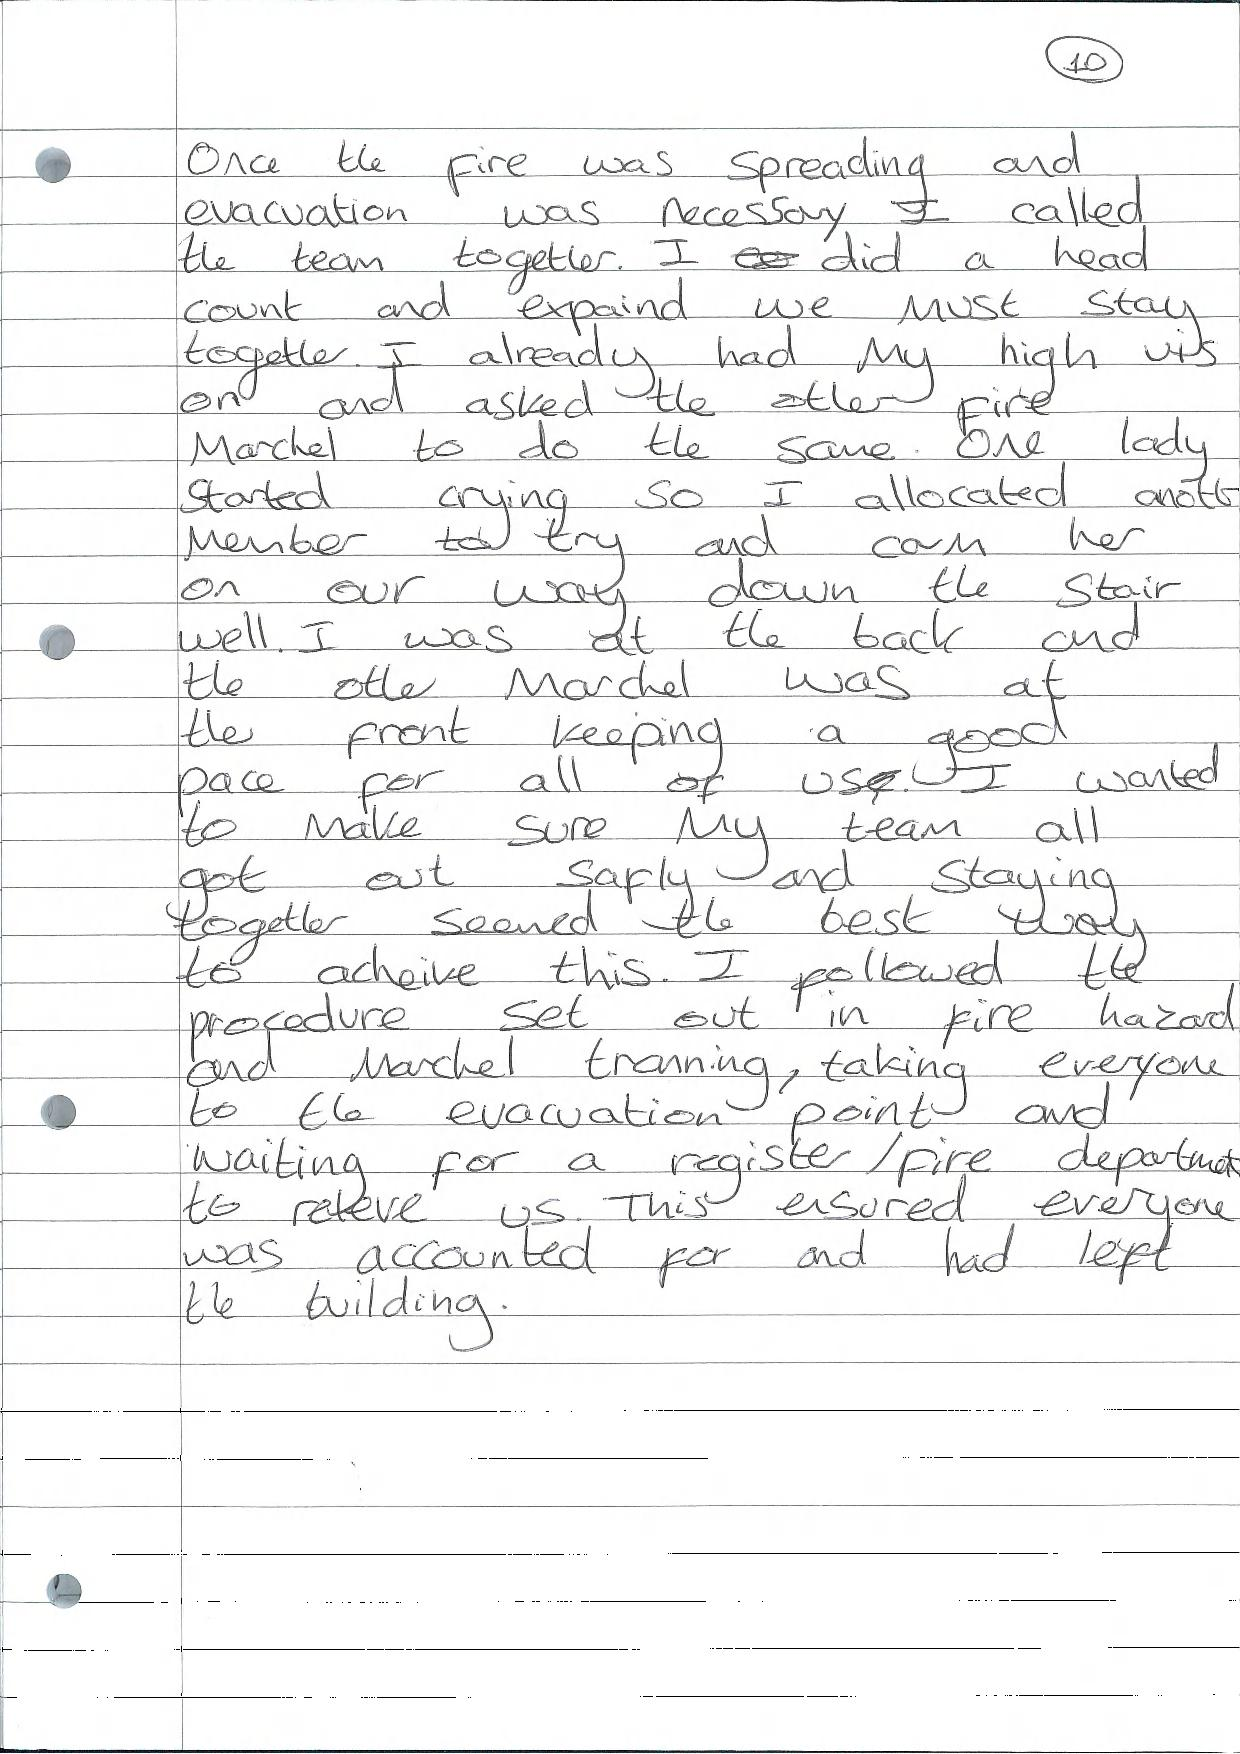 10
Once the fire was spreading and
evacuation was necessary I called
the team together. I did a head
count and expaind we must stay
together. I already had my high vis
on and asked the other fire
Marchel to do the same. One lady
started crying so I allocated anoth
member to try and carm her
on our way down the stair
well. I was at the back and
the other Marchel was at
the front keeping a good
pace for all of us. I wanted
to make sure my team all
got out safly and staying
together seemed the best way
to acheive this. I followed the
procedure set out in fire hazard
and Marchel tranning, taking everyone
to the evacuation point and
waiting for a register/fire department
to releve us. This ensured everyone
was accounted for and had left
the building.